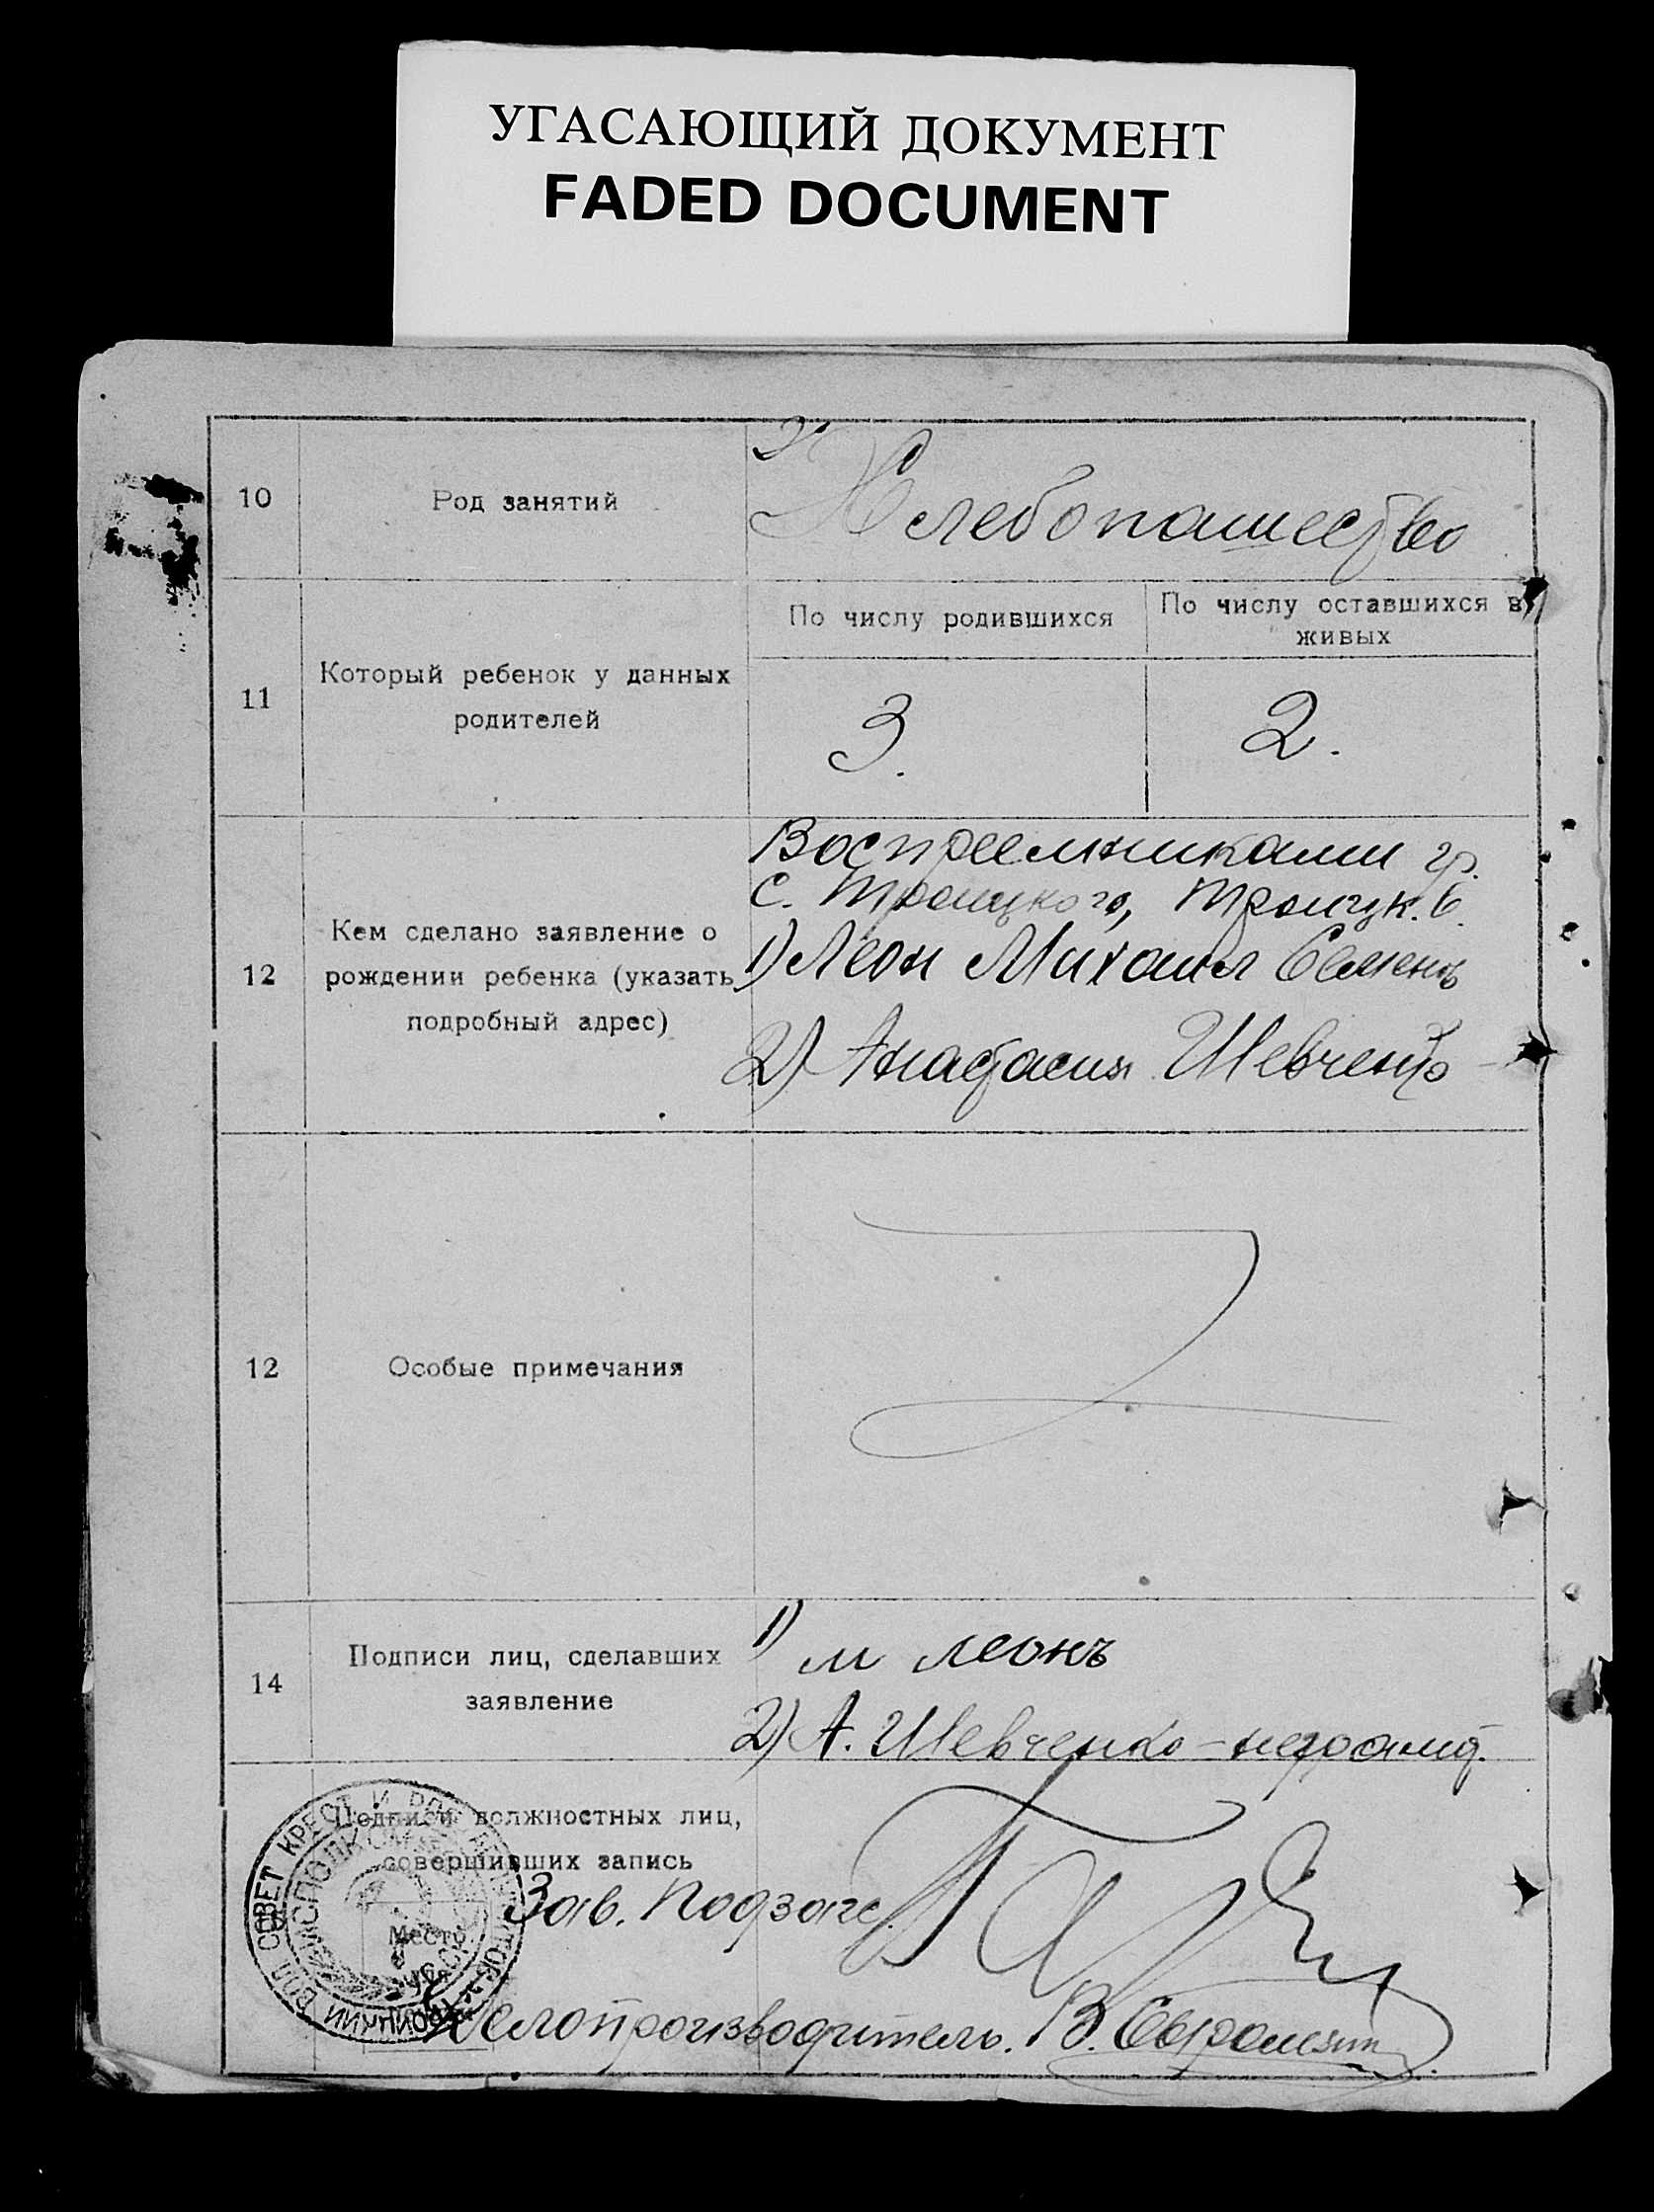 УГАСАЮЩИЙ ДОКУМЕНТ
FADED DOCUMENT
10
Род занятий
Хлебопашество
11
Который ребенок у данных
родителей
По числу родившихся
По числу оставшихся в
живых
3.
2.
12
Кем сделано заявление о
рождении ребенка (указать
подробный адрес)
Восприемниками гр.
с. Троицкого, Троицк. в.
1) Леон Михаил Семенъ
2) Анастасия Шевченко
12
Особые примечания
14
Подписи лиц, сделавших
заявление
1) м леонъ
2) А. Шевченко –
Подписи должностных лиц,
совершивших запись
Зав. Подзагс.
Место
Делопроизводитель. В.
СОВЕТ КРЕСТ И
ИСПОЛКОМ